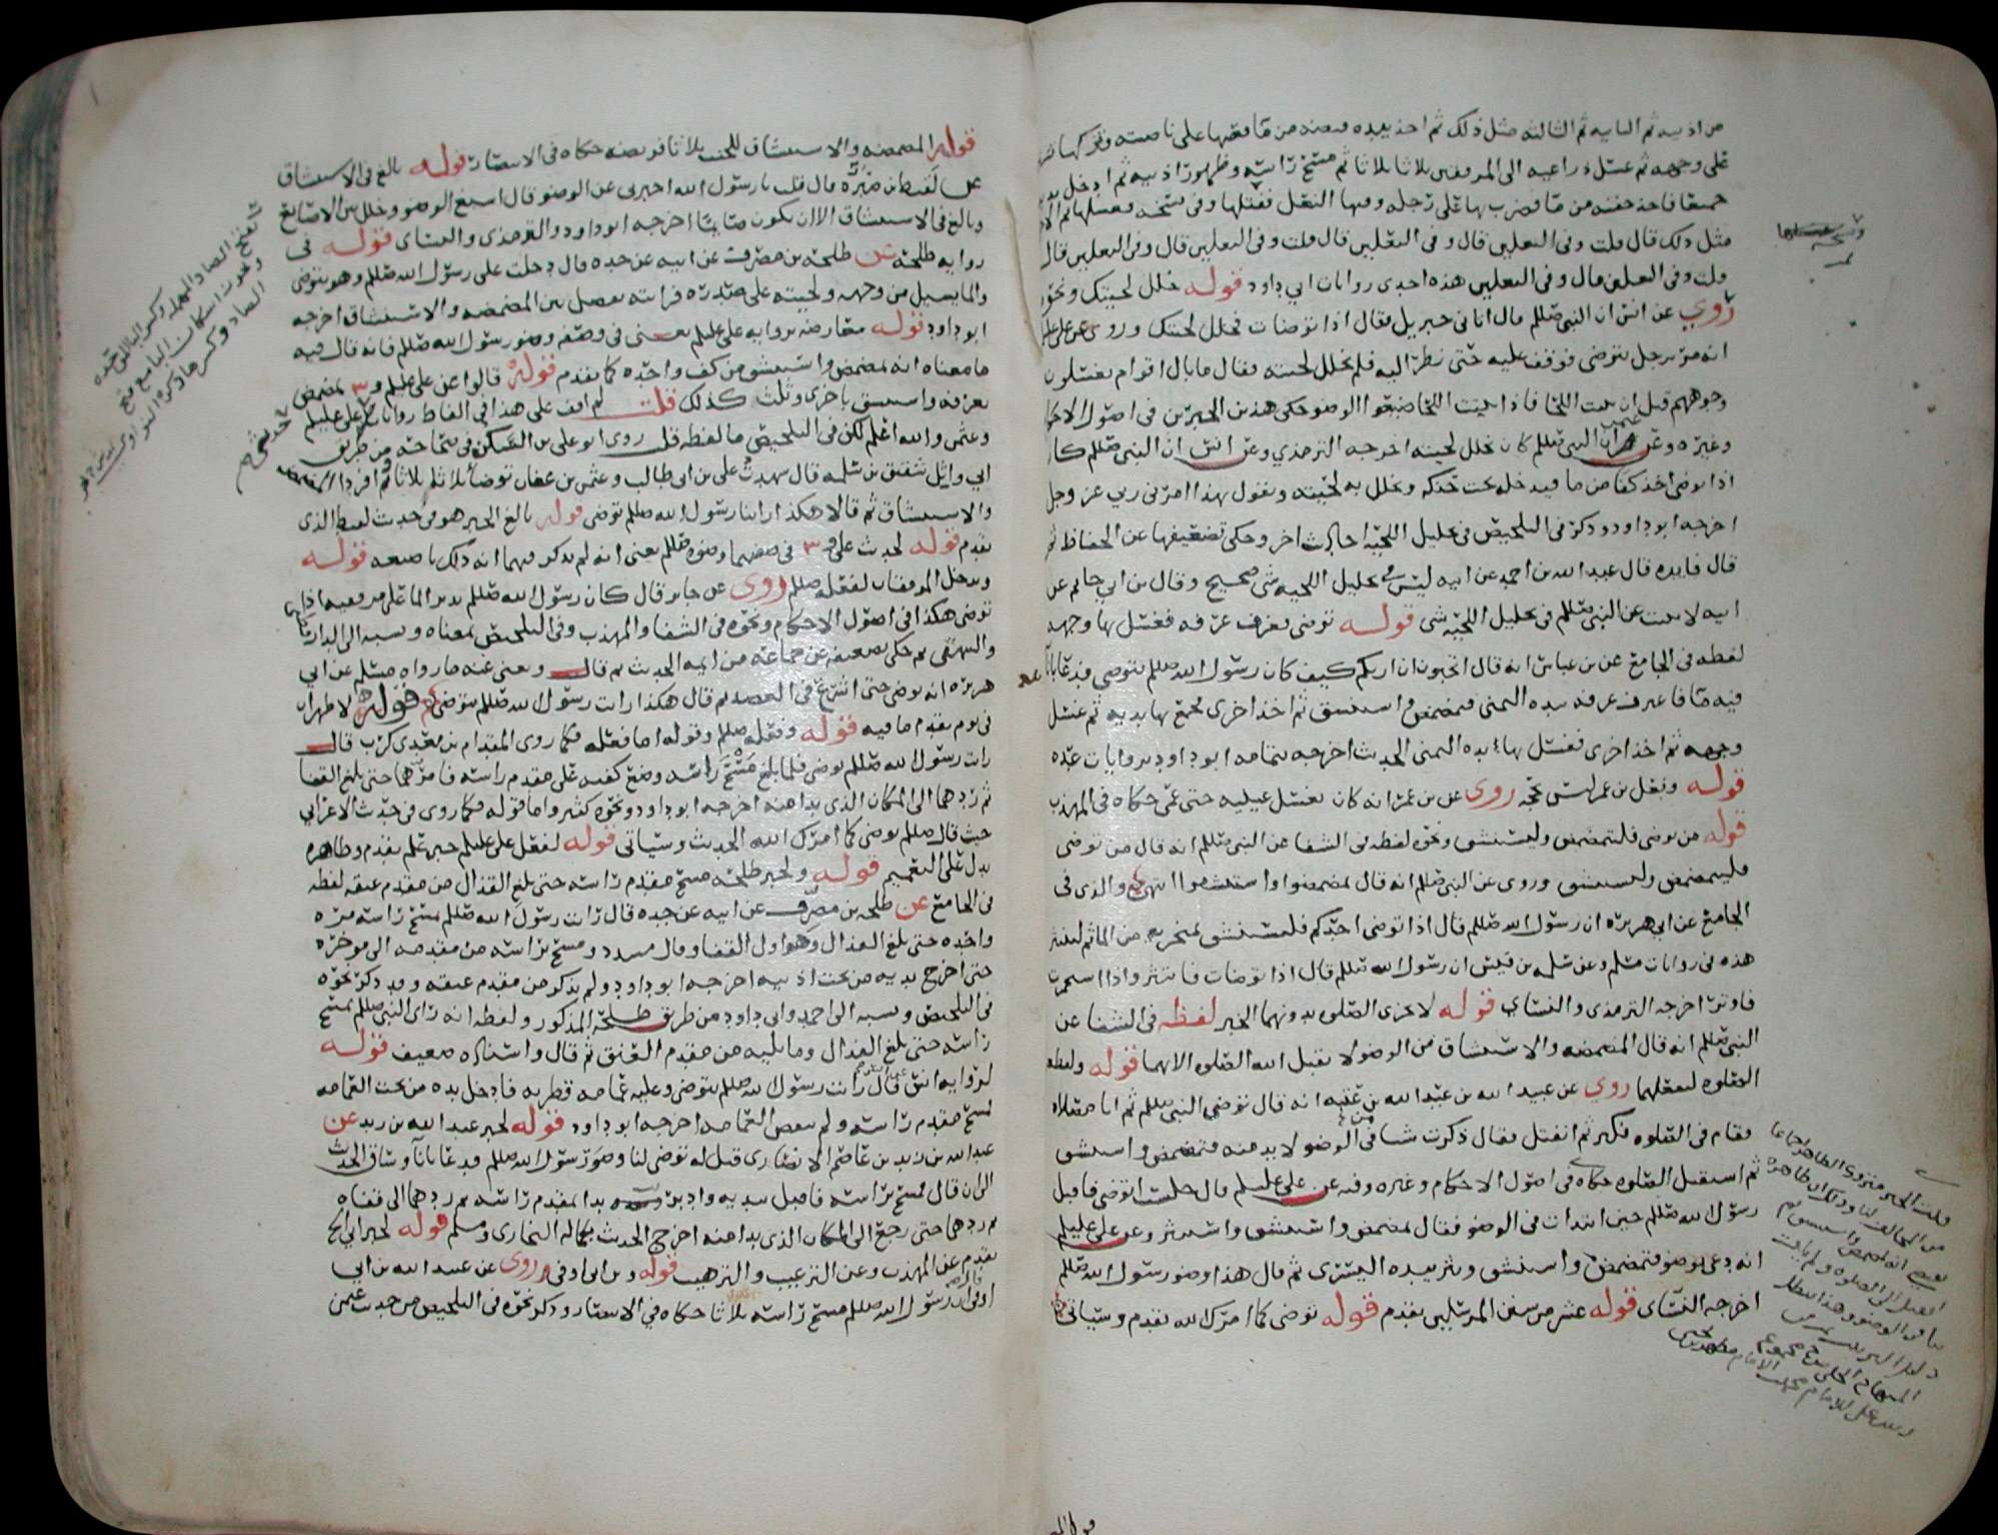 من اذنيه ثم الثانيه ثم الثالثه مثل ذلك ثم اخذ بيده قبضه من ما فصبها على ناصيته وتركها
على وجهه ثم غسل ذراعيه الى المرفقين ثلاثا ثلاثا ثم مسح راسه وظهور اذنيه ثم ادخل يديه
جميعا فاخذ حفنه من ما فضرب بها على رجله وفيها النعل ففتلها وفي نسخه فغسلها ثم الاخرى
مثل ذلك قال قلت وفي النعلين قال وفي النعلين قال قلت وفي النعلين قال وفي النعلين قال
قلت وفي النعلين قال وفي النعلين هذه احدى روايات ابي داود قوله خلل لحيتك ونحوه
روي عن انس ان النبي صللم قال اتاني جبريل فقال اذا توضات فخلل لحيتك وروي عن علي عليلم
انه مر برجل يتوضى فوقف عليه حتى نظر اليه فلم يخلل لحيته فقال ما بال اقوام يغسلون
وجوههم قبل ان تنبت اللحا فاذا نبتت اللحا ضيعوا الوضو حكى هذين الخبرين في اصول الاحكام
وغيره وعن عثمن ان النبي صللم كان يخلل لحيته اخرجه الترمذي وعن انس ان النبي صللم كان
اذا توضى اخذ كفا من ما فيدخله تحت حنكه ويخلل به لحيته ويقول بهذا امرني ربي عز وجل
اخرجه ابو داود وذكر في التلخيص في تخليل اللحيه احاديث اخر وحكى تضعيفها عن الحفاظ ثم
قال فايده قال عبد الله بن احمد عن ابيه ليس في تخليل اللحيه شي صحيح وقال بن ابي حاتم عن
ابيه لا يثبت عن النبي صللم في تخليل اللحيه شي قوله توضى بغرف غرفه فغسل بها وجهه
لفظه في الجامع عن بن عباس انه قال اتحبون ان اريكم كيف كان رسول الله صللم يتوضى فدعا باناء
فيه ما فاغترف غرفه بيده اليمنى فتمضمض واستنشق ثم اخذ اخرى فجمع بها يديه ثم غسل
وجهه ثم اخذ اخرى فغسل بها يده اليمنى الحديث اخرجه بتمامه ابو داود بروايات عده
قوله وفعل بن عمر ليس بحجه روي عن بن عمر انه كان يغسل عينيه حتى عمي حكاه في المهذب
قوله من توضى فليتمضمض وليستنشق ونحوه لفظه في الشفا عن النبي صللم انه قال من توضى
فليتمضمض وليستنشق وروي عن النبي صللم انه قال تمضمضوا واستنشقوا انتهى والذي في
الجامع عن ابي هريره ان رسول الله صللم قال اذا توضى احدكم فليستنشق بمنخريه من الما ثم لينتثر
هذه في روايات مسلم وعن سلمه بن قيس ان رسول الله صللم قال اذا توضات فانتثر واذا استجمرت
فاوتر اخرجه الترمذي والنساي قوله لا تجزي الصلوه بدونهما الخبر لفظه في الشفا عن
النبي صللم انه قال المضمضه والاستنشاق من الوضو لا يقبل الله الصلوه الا بهما قوله ولقطعه
الصلوه لفعلهما روي عن عبيد الله بن عبد الله بن عتبه انه قال توضى النبي صللم ثم اتا مصلاه
فقام في الصلوه فكبر ثم انفتل فقال ذكرت شيا من الوضو لا بد منه فتمضمض واستنشق
ثم استقبل الصلوه حكاه في اصول الاحكام وغيره وفيه عن علي عليلم قال جلست اتوضى فاقبل
رسول الله صللم حين ابتدات في الوضو فقال تمضمض واستنشق واستنثر وعن علي عليلم
انه دعى بوضو فتمضمض واستنشق ونثر بيده اليسرى ثم قال هذا وضو رسول الله صللم
اخرجه النساي قوله عشر من سنن المرسلين تقدم قوله توضى كما امرك الله تقدم وسياتي
قوله المضمضه والاستنشاق للجنب ثلاثا فريضه حكاه في الانتصار قوله بالغ في الاستنشاق
عن لقيط بن صبره قال قلت يا رسول الله اخبرني عن الوضو قال اسبغ الوضو وخلل بين الاصابع
وبالغ في الاستنشاق الا ان تكون صايما اخرجه ابو داود والترمذي والنساي قوله في
روايه طلحه عن طلحه بن مصرف عن ابيه عن جده قال دخلت على رسول الله صللم وهو يتوضى
والما يسيل من وجهه ولحيته على صدره فرايته يفصل بين المضمضه والاستنشاق اخرجه
ابو داود قوله معارضه بروايه علي عليلم يعني في وصفه وضو رسول الله صللم فانه قال فيه
ما معناه انه تمضمض واستنشق من كف واحده كما تقدم قوله قالوا عن علي عليلم و تمضمض
بغرفه واستنشق باخرى وثلث كذلك قلت لم اقف على هذا في الفاظ روايات علي عليلم
وعثمن والله اعلم لكن في التلخيص ما لفظه قلت روى ابو علي بن السكن في صحاحه من طريق
ابي وايل شقيق بن سلمه قال شهدت علي بن ابي طالب وعثمن بن عفان توضا ثلاثا ثلاثا وافردا المضمضه
والاستنشاق ثم قالا هكذا راينا رسول الله صللم توضى قوله بالغ الخبر هو من حديث لقيط الذي
تقدم قوله لحديث علي و في صفتهما وضوه صللم يعني انه لم يذكر فيهما انه دلك باصبعه قوله
وتدخل المرفقان لفعله صللم روي عن جابر قال كان رسول الله صللم يدير الما على مرفقيه اذا
توضى هكذا في اصول الاحكام ونحوه في الشفا والمهذب وفي التلخيص بمعناه ونسبه الى الدارقطني
والبيهقي ثم حكى تضعيفه عن جماعه من ايمه الحديث ثم قال ويغني عنه ما رواه مسلم عن ابي
هريره انه توضى حتى اشرع في العضد ثم قال هكذا رايت رسول الله صللم يتوضى قوله لا طهران
في يوم تقدم ما فيه قوله وفعله صللم وقوله اما فعله فكما روى المقدام بن معدي كرب قال
رايت رسول الله صللم توضى فلما بلغ مسح راسه وضع كفيه على مقدم راسه فامرهما حتى بلغ القفا
ثم ردهما الى المكان الذي بدا منه اخرجه ابو داود ونحوه كثير واما قوله فكما روي في حديث الاعرابي
حيث قال صللم توضى كما امرك الله الحديث وسياتي قوله لفعل علي عليلم حين علم تقدم وظاهره
يدل على التعميم قوله ولخبر طلحه مسح مقدم راسه حتى بلغ القذال من مقدم عنقه لفظه
في الجامع عن طلحه بن مصرف عن ابيه عن جده قال رايت رسول الله صللم يمسح راسه مره
واحده حتى بلغ القذال وهو اول القفا وقال مسدد ومسح براسه من مقدمه الى موخره
حتى اخرج يديه من تحت اذنيه اخرجه ابو داود ولم يذكر من مقدم عنقه وقد ذكر نحوه
في التلخيص ونسبه الى احمد وابي داود من طريق طلحه المذكور ولفظه انه راى النبي صللم يمسح
راسه حتى بلغ القذال وما يليه من مقدم العنق ثم قال واسناده ضعيف قوله
لروايه انس قال رايت رسول الله صللم يتوضى وعليه عمامه قطريه فادخل يده من تحت العمامه
فمسح مقدم راسه ولم ينقض العمامه اخرجه ابو داود قوله لخبر عبد الله بن زيد عن
عبد الله بن زيد بن عاصم الانصاري قيل له توضى لنا وضو رسول الله صللم فدعا باناء وساق الحديث
الى ان قال فمسح براسه فاقبل بيديه وادبر بدا بمقدم راسه ثم ردهما الى قفاه
ثم ردهما حتى رجع الى المكان الذي بدا منه اخرج الحديث بكماله البخاري ومسلم قوله لخبر ابي
تقدم عن المهذب وعن الترغيب والترهيب قوله وبن ابي اوفى روي عن عبد الله بن ابي
اوفى ان رسول الله صللم مسح راسه ثلاثا حكاه في الانتصار وذكر نحوه في التلخيص من حديث عثمن